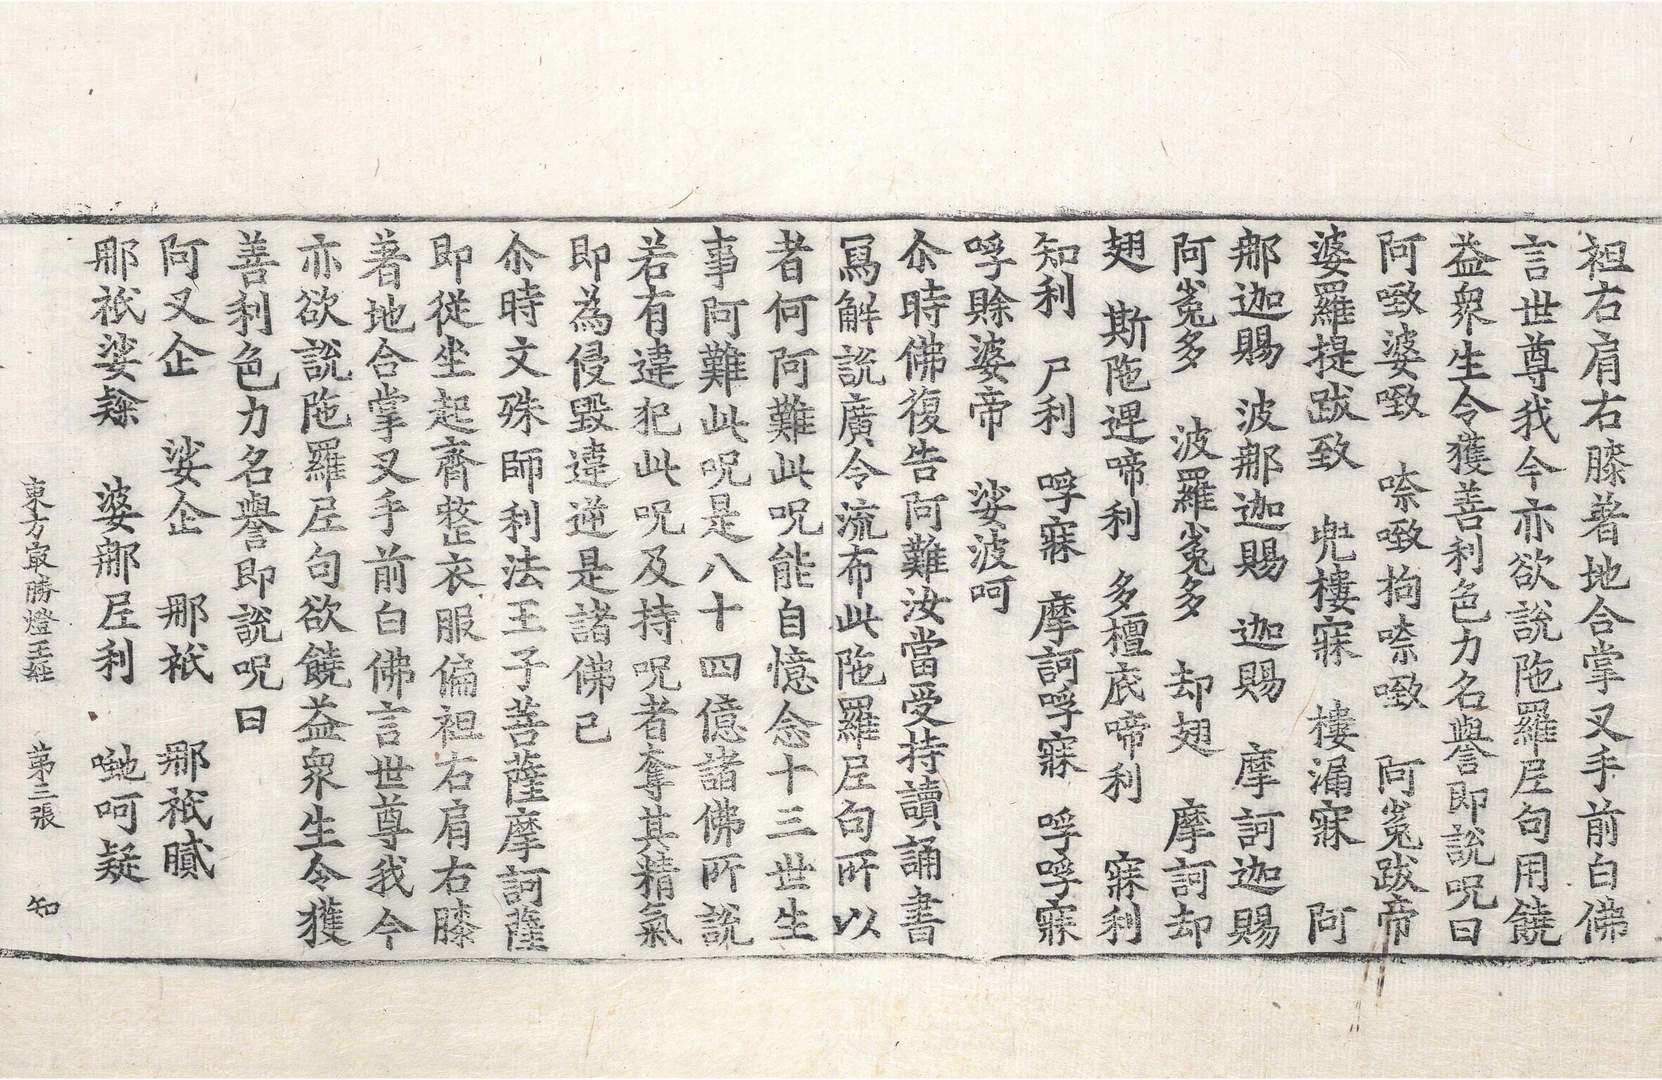 袒右肩右膝著地合掌叉手前白佛
言世尊我今亦欲說陁羅𡰱句用饒
益衆生令獲善利色力名譽即說呪曰
阿㗌婆㗌　㗚㗌拘㗚㗌　阿㝹跋帝
婆羅提跋致　兜樓寐　樓漏寐　阿
那迦賜　波那迦賜　迦賜　摩訶迦賜
阿㝹多　波羅㝹多　却翅　摩訶却
翅　斯陁遟啼利　多檀底啼利　寐利
知利　尸利　㖀寐　摩訶㖀寐　㖀㖀寐
㖀賒婆帝　娑波呵
尒時佛復告阿難汝當受持讀誦書
冩解說廣令流布此陁羅𡰱句所以
者何阿難此呪能自憶念十三世生
事阿難此呪是八十四億諸佛所說
若有違犯此呪及持呪者奪其精氣
即為侵毀違逆是諸佛已
尒時文殊師利法王子菩薩摩訶薩
即從坐起齊整衣服偏袒右肩右膝
著地合掌叉手前白佛言世尊我今
亦欲說陁羅𡰱句欲饒益衆生令獲
善利色力名譽即說呪曰
阿叉企　娑企　那祇　那祇膩
那祇娑㜸　婆那𡰱利　㘑呵疑
東方㝡勝燈王経　苐三張　知